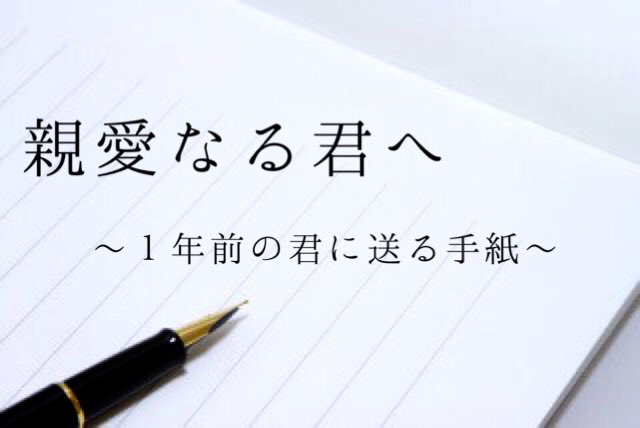 親愛なる君へ
～１年前の君に送る手紙～